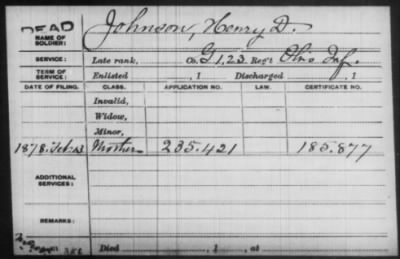 DEAD
NAME OF SOLDIER: Johnson, Henry D.
SERVICE: Late rank, Co. G 123 Regt Ohio Inf.
TERM OF SERVICE: Enlisted , 1 Discharged , 1
DATE OF FILING. CLASS. APPLICATION NO. LAW. CERTIFICATE NO.
Invalid,
Widow,
Minor,
1878. Feb. Mother 235.421 185.877
ADDITIONAL SERVICES:
REMARKS:
Died , 1 , at